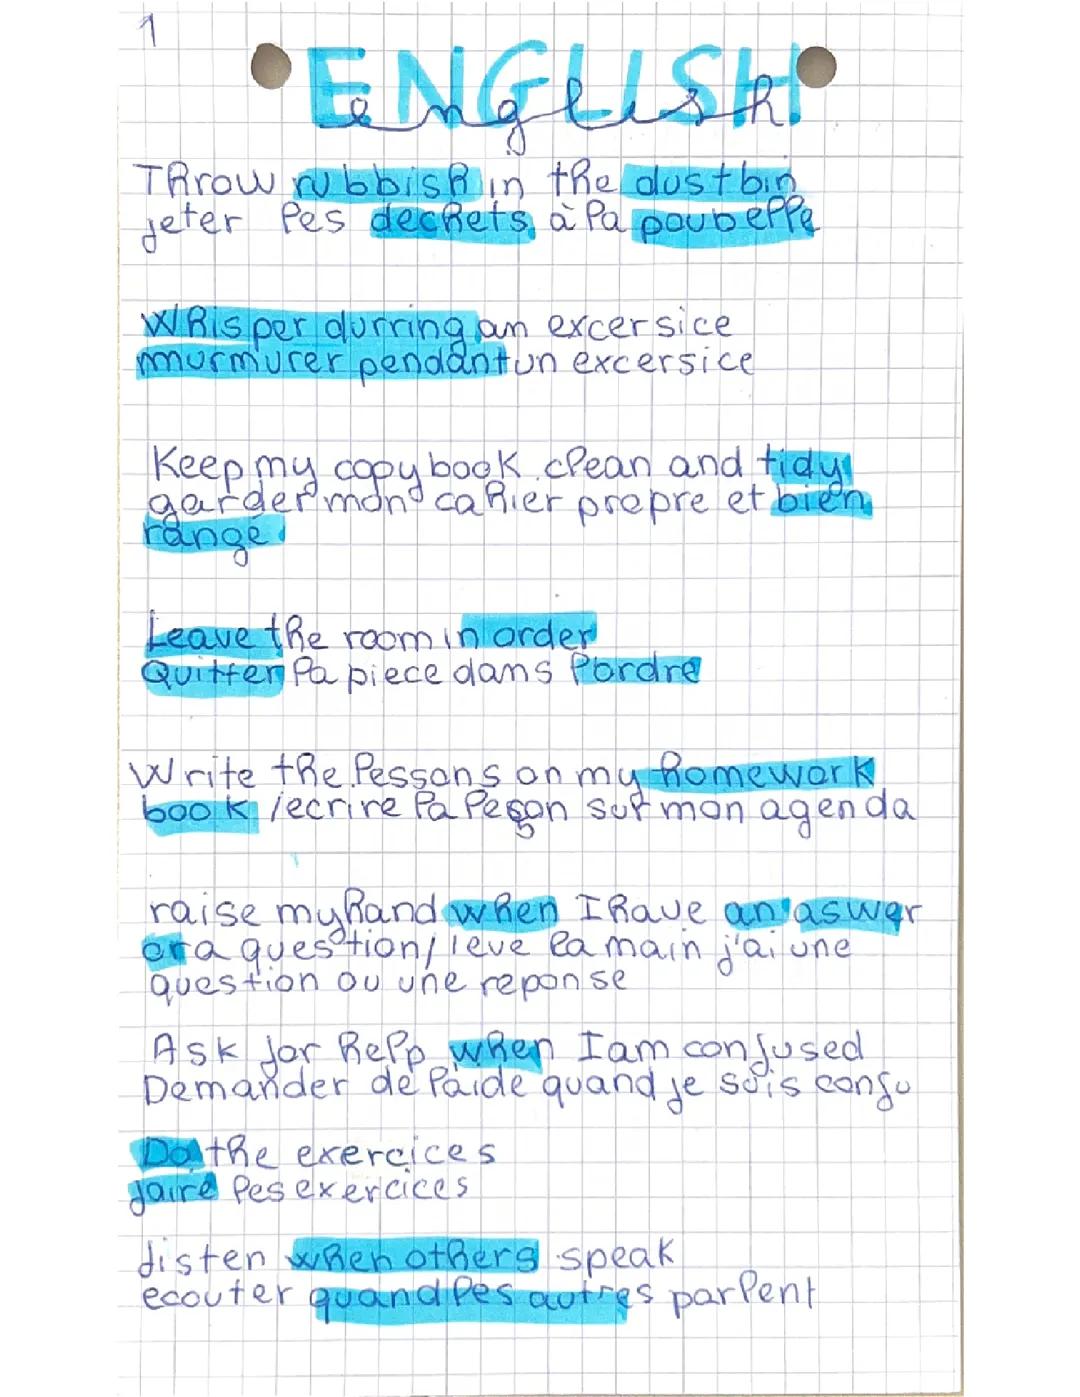 1
ENGLISH
english
Throw rubbish in the dustbin
jeter les dechets à la poubelle
Whisper durring an excersice
murmurer pendant un excersice
Keep my copybook clean and tidy
garder mon cahier propre et bien
range
Leave the room in order
Quitter la piece dans l'ordre
Write the lessons on my homework
book / ecrire la leçon sur mon agenda
raise my hand when I have an aswer
or a question / leve la main j'ai une
question ou une reponse
Ask for help when I am confused
Demander de l'aide quand je suis confu
Do the exercices
faire les exercices
listen when others speak
ecouter quand les autres parlent